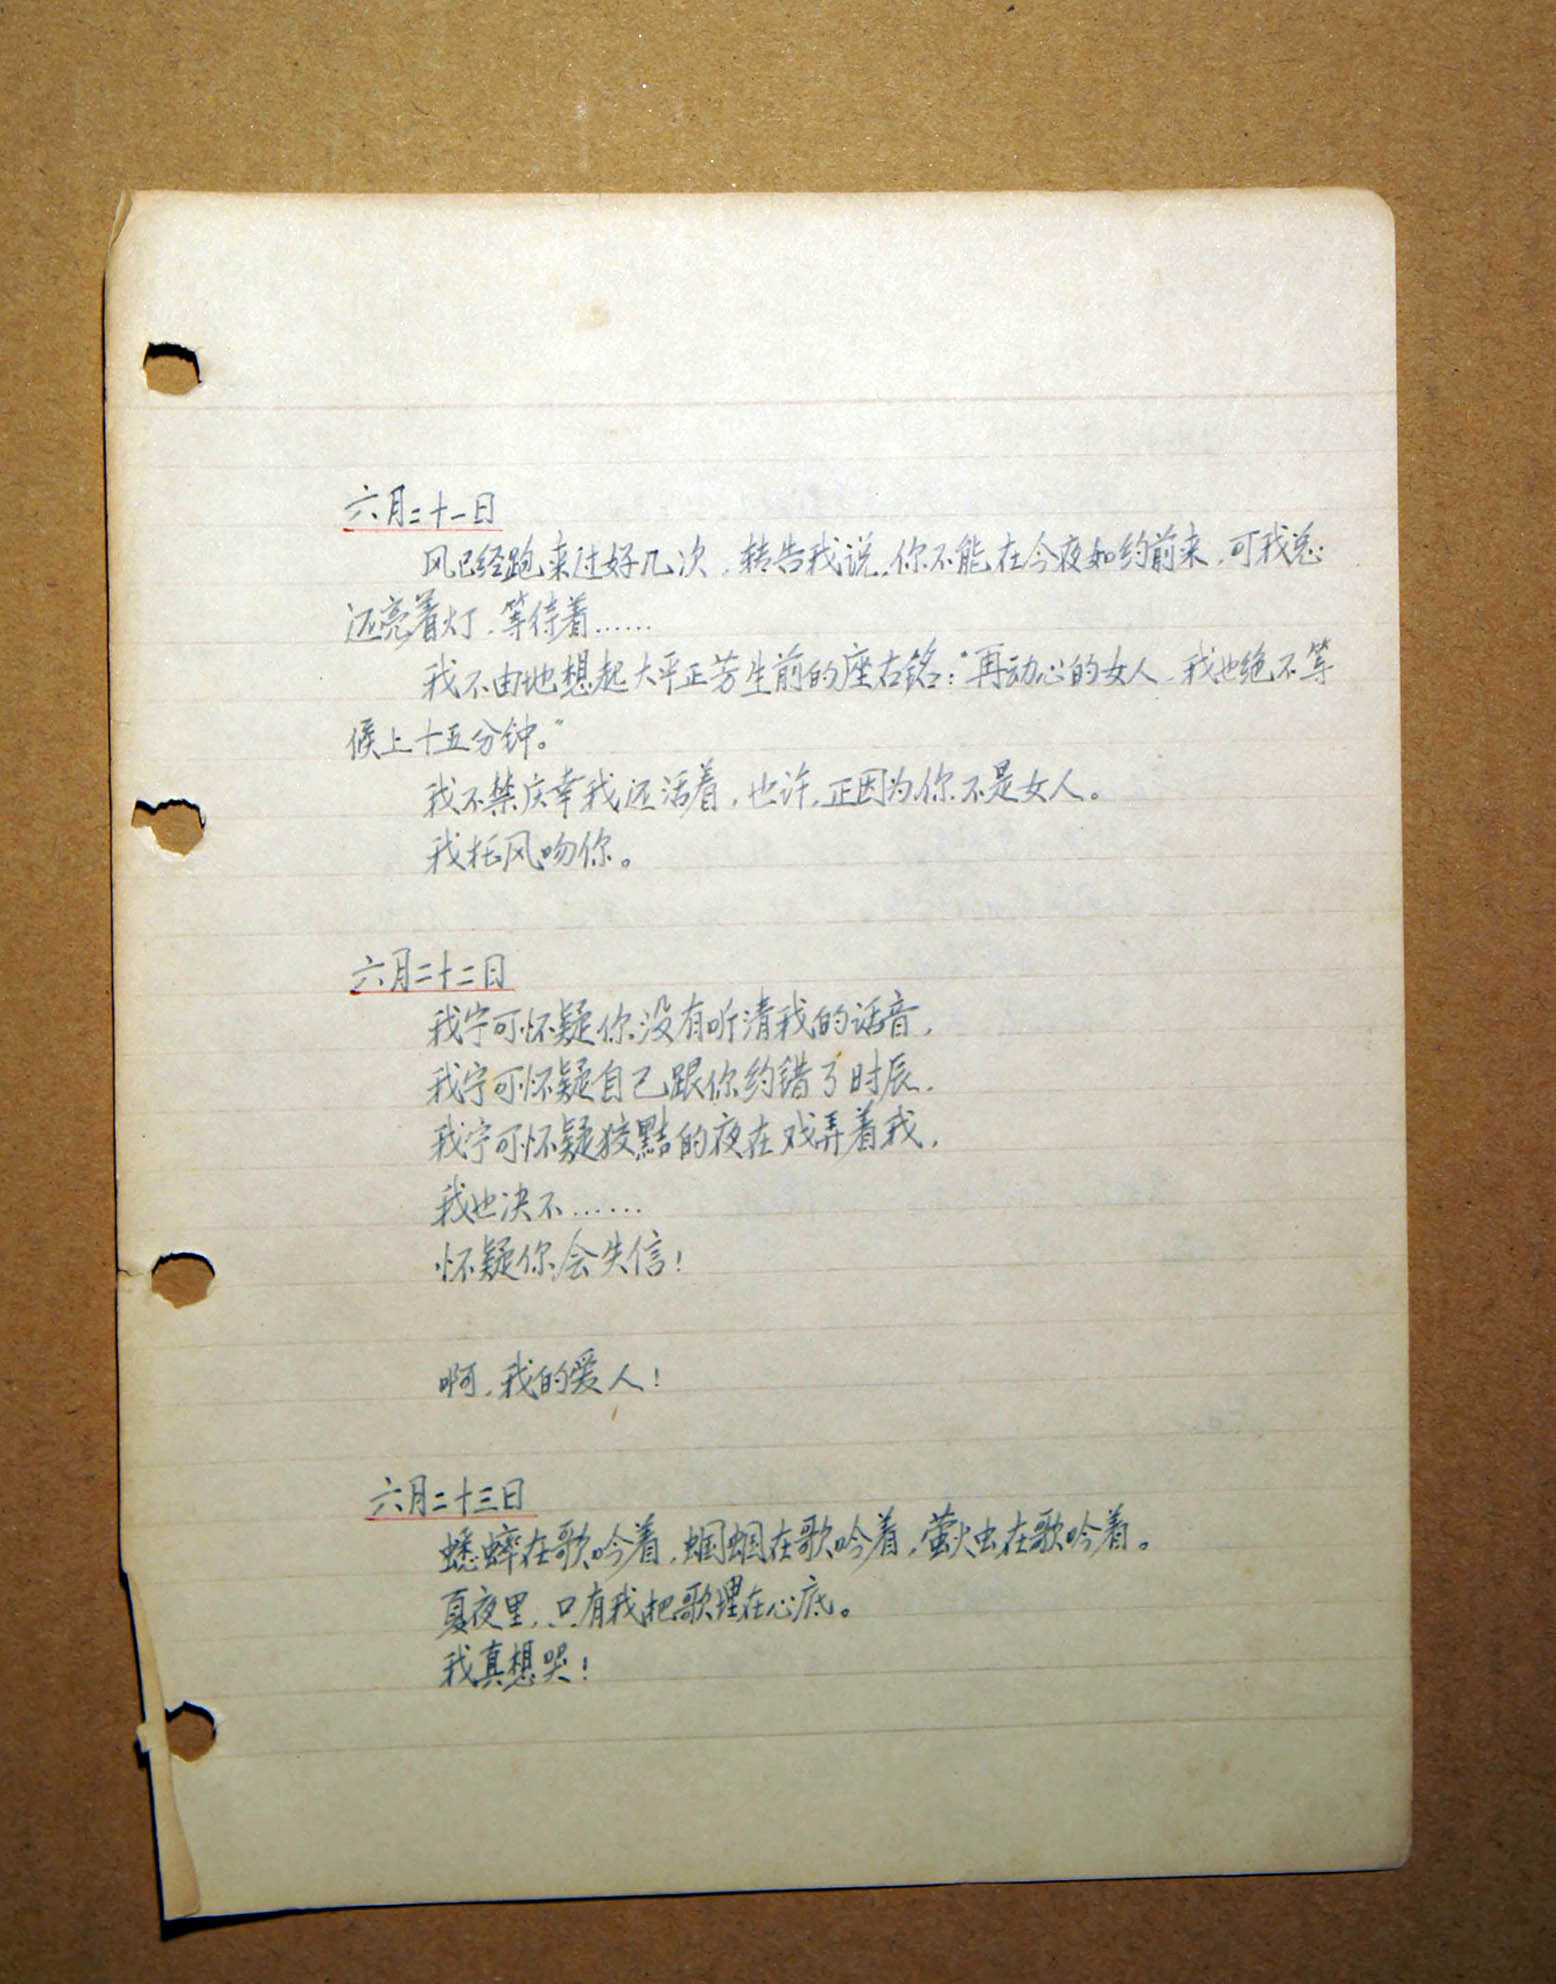 六月二十一日
风已经跑来过好几次，转告我说，你不能在今夜如约前来，可我总
还亮着灯，等待着……
我不由地想起大平正芳生前的座右铭：“再动心的女人，我也绝不等
候上十五分钟。”
我不禁庆幸我还活着，也许，正因为你不是女人。
我托风吻你。
六月二十二日
我宁可怀疑你没有听清我的话音，
我宁可怀疑自己跟你约错了时辰，
我宁可怀疑狡黠的夜在戏弄着我，
我也决不……
怀疑你会失信！
啊，我的爱人！
六月二十三日
蟋蟀在歌吟着，蝈蝈在歌吟着，萤火虫在歌吟着。
夏夜里，只有我把歌埋在心底。
我真想哭！